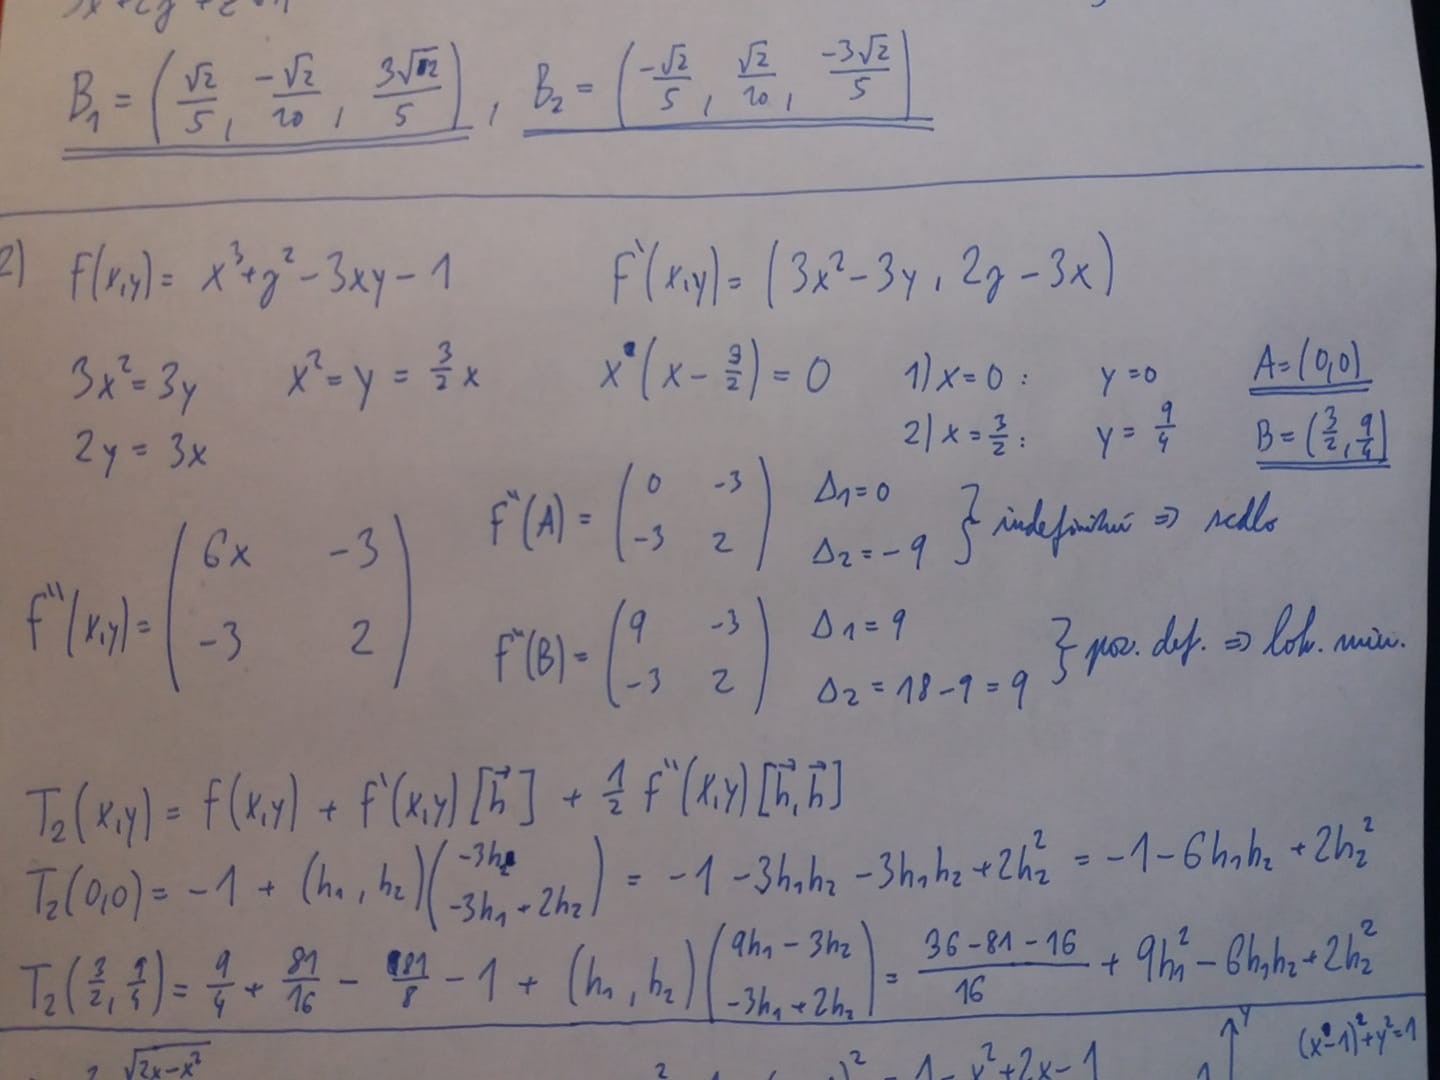 B₁ = (√2/5, -√2/20, 3√2/5), B₂ = (-√2/5, √2/20, -3√2/5)
2) f(x,y) = x³+y²-3xy-1 f'(x,y) = (3x²-3y, 2y-3x)
3x²=3y x²=y=3/2 x x(x-3/2)=0 1) x=0: y=0 A=(0,0)
2y=3x 2) x=3/2: y=9/4 B=(3/2, 9/4)
f''(x,y) = (6x -3 / -3 2) f''(A) = (0 -3 / -3 2) Δ₁=0 Δ₂=-9 } indefinitní ⇒ sedlo
f''(B) = (9 -3 / -3 2) Δ₁=9 Δ₂=18-9=9 } poz. def. ⇒ lok. min.
T₂(x,y) = f(x,y) + f'(x,y)[h⃗] + 1/2 f''(x,y)[h⃗,h⃗]
T₂(0,0) = -1 + (h₁,h₂)(-3h₂ / -3h₁+2h₂) = -1-3h₁h₂-3h₁h₂+2h₂² = -1-6h₁h₂+2h₂²
T₂(3/2, 9/4) = 9/4 + 81/16 - 81/8 - 1 + (h₁,h₂)(9h₁-3h₂ / -3h₁+2h₂) = (36-81-16)/16 + 9h₁²-6h₁h₂+2h₂²
√(2x-x²) y (x-1)²+y²=1